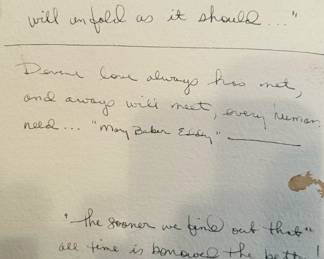 will unfold as it should..."
Devine love always has met,
and aways will meet, every human
need... "Mary Baker Eddy"
"the sooner we find out that"
all time is borrowed the bett !